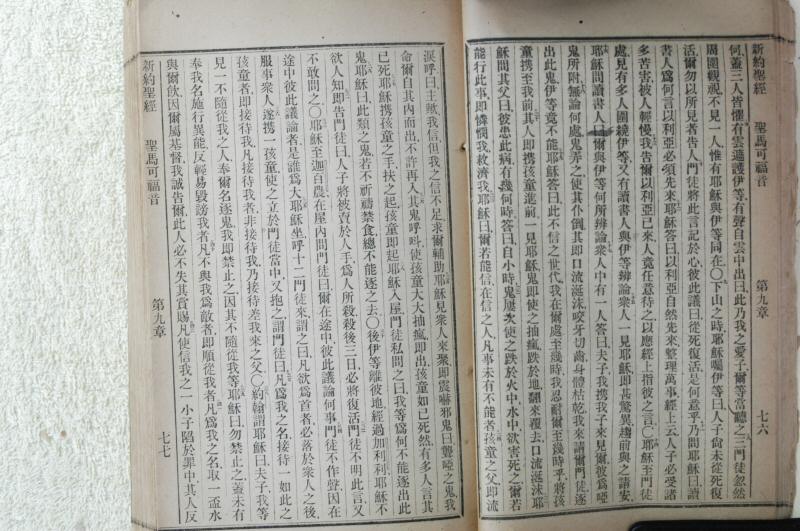 新約聖經　聖馬可福音　第九章　七六
何蓋三人皆懼有雲遮護伊等有聲自雲中出曰此乃我之愛子爾等當聽之門徒忽然
周圍觀視不見一人惟有耶穌與伊等同在〇下山之時耶穌囑伊等曰人子尙未從死復
活爾勿以所見者告人門徒將此言記於心彼此議曰從死復活是何意乎乃問耶穌曰讀
書人爲何言以利亞必須先來耶穌答曰以利亞自然先來整理萬事經上云人子必受諸
多苦害被人輕慢我告爾以利亞已來人竟任意待之以應經上指彼之言〇耶穌至門徒
處見有多人圍繞伊等又有讀書人與伊等辨論衆人一見耶穌即甚驚異趨前與之請安
耶穌問讀書人曰爾與伊等何所辨論衆人中有一人答曰夫子我携我子來見爾彼爲啞
鬼所附無論何處鬼弄之使其仆倒其即口流涎沫咬牙切齒身體枯乾我來請爾門徒逐
出此鬼伊等竟不能耶穌答曰此不信之世代我在爾處至幾時我忍耐爾至幾時乎將孩
童携至我前其人即携孩童進前一見耶穌鬼即使之抽瘋跌於地翻來覆去口流涎沫耶
穌問其父曰彼患此病有幾何時答曰自小時鬼屢次使之跌於火中水中欲害死之爾若
能行此事即憐憫我救濟我耶穌曰爾若能信在信之人凡事未有不能者孩童之父即流
淚呼曰主歟我信但我之信不足求爾輔助耶穌見衆人來聚即震嚇邪鬼曰聾啞之鬼我
命爾自其内而出不許再入其鬼呼呌使孩童大大抽瘋即出孩童如已死然有多人言其
已死耶穌携孩童之手扶之起孩童即起耶穌入屋門徒私問之曰我等爲何不能逐出此
鬼耶穌曰此類之鬼若不祈禱禁食總不能逐之去〇後伊等離彼地經過加利利耶穌不
欲人知即告門徒曰人子將被賣於人手爲人所殺殺後三日必將復活門徒不明此言又
不敢問之〇耶穌至迦百農在屋内問門徒曰爾在途中彼此議論何事門徒不作聲因在
途中彼此議論者是誰爲大耶穌坐呼十二門徒來謂之曰凡欲爲首者必落於衆人之後
服事衆人遂携一孩童使之立於門徒當中又抱之謂門徒曰凡爲我之名接待一如此之
孩童者即接待我凡接待我者非接待我乃接待差我來之父〇約翰謂耶穌曰夫子我等
見一不隨從我之人奉爾名逐鬼我即禁止之因其不隨從我等耶穌曰勿禁止之蓋未有
奉我名施行異能反輕易毀謗我者凡不與我爲敵者即順從我者凡爲我之名取一盃水
與爾飲因爾屬基督我誠告爾此人必不失其賞賜凡使信我之一小子陷於罪中其人反
新約聖經　聖馬可福音　第九章　七七